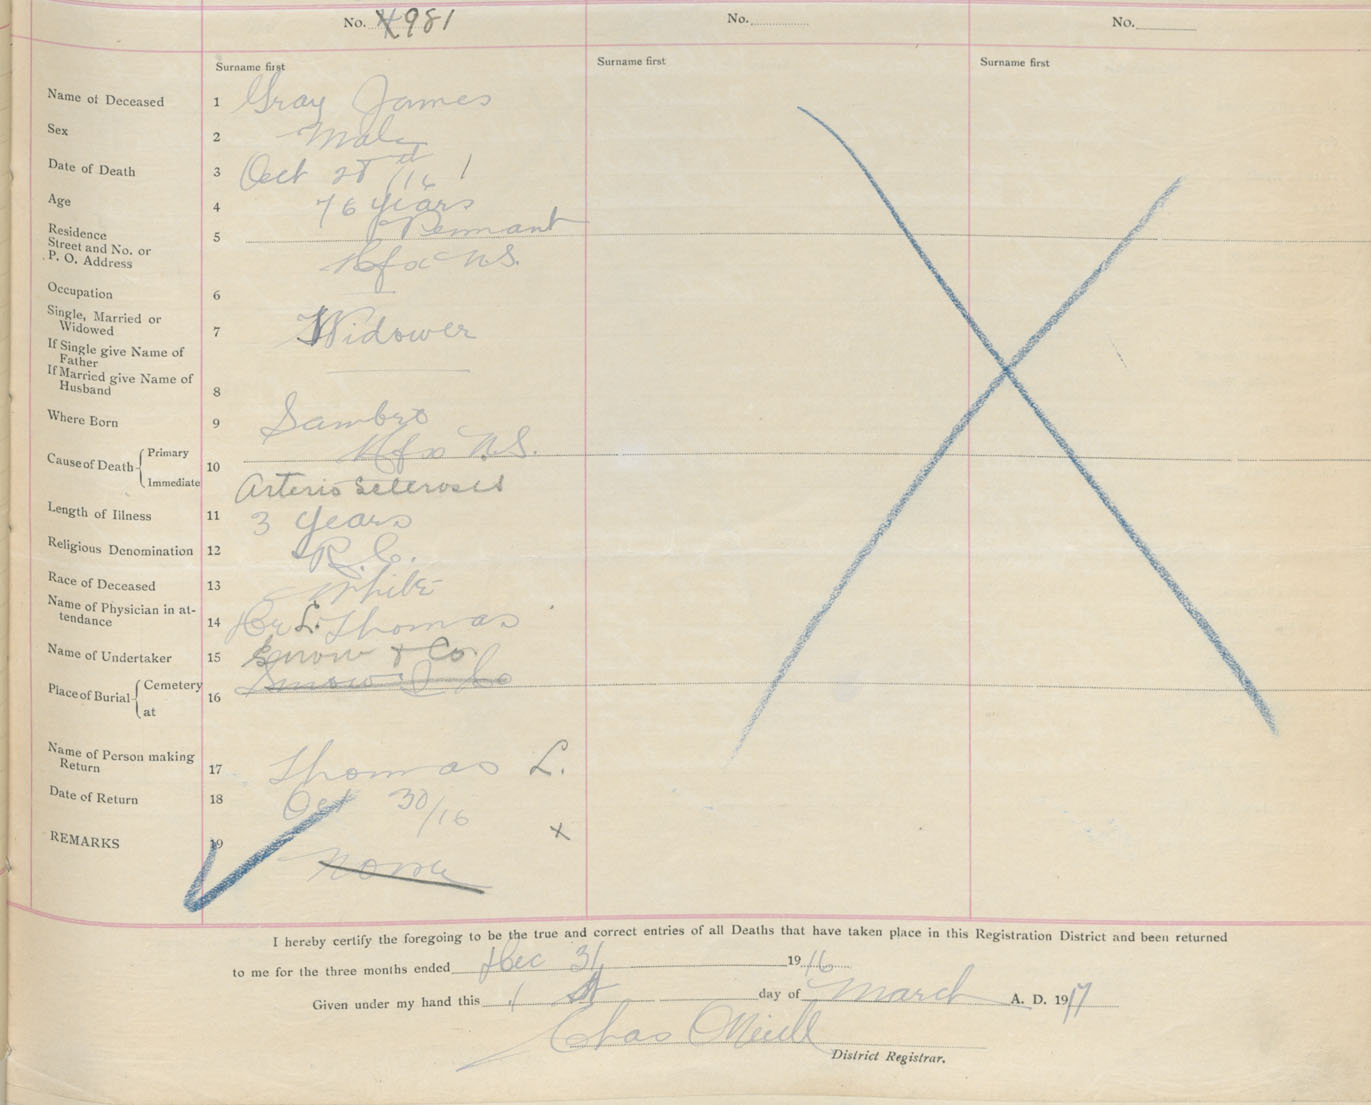 No. 4981
No.
No.
Surname first
Surname first
Surname first
Name of Deceased 1 Gray James
Sex 2 Male
Date of Death 3 Oct 28th/16
Age 4 76 years
Residence
Street and No. or
P. O. Address
5 Pennant
Hfx N.S.
Occupation 6
Single, Married or
Widowed
7 Widower
If Single give Name of
Father
If Married give Name of
Husband
8
Where Born 9 Sambro
Hfx N.S.
Cause of Death Primary
Immediate
10
Arterio Sclerosis
Length of Illness 11 3 years
Religious Denomination 12 R.C.
Race of Deceased 13 White
Name of Physician in at-
tendance
14 Dr L. Thomas
Name of Undertaker 15 Snow & Co.
Snow & Co
Place of Burial Cemetery
at
16
Name of Person making
Return
17 Thomas L.
Date of Return 18 Oct 30/16
x
REMARKS 19
None
I hereby certify the foregoing to be the true and correct entries of all Deaths that have taken place in this Registration District and been returned
to me for the three months ended Dec 31 1916
Given under my hand this 1st day of March A. D. 1917
Chas O'Neill
District Registrar.